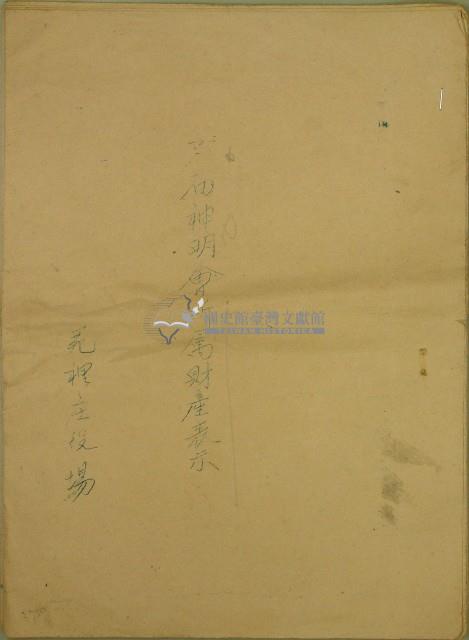 廟神明會所屬財產表示
苑裡庄役場
國史館臺灣文獻館
TAIWAN HISTORICA